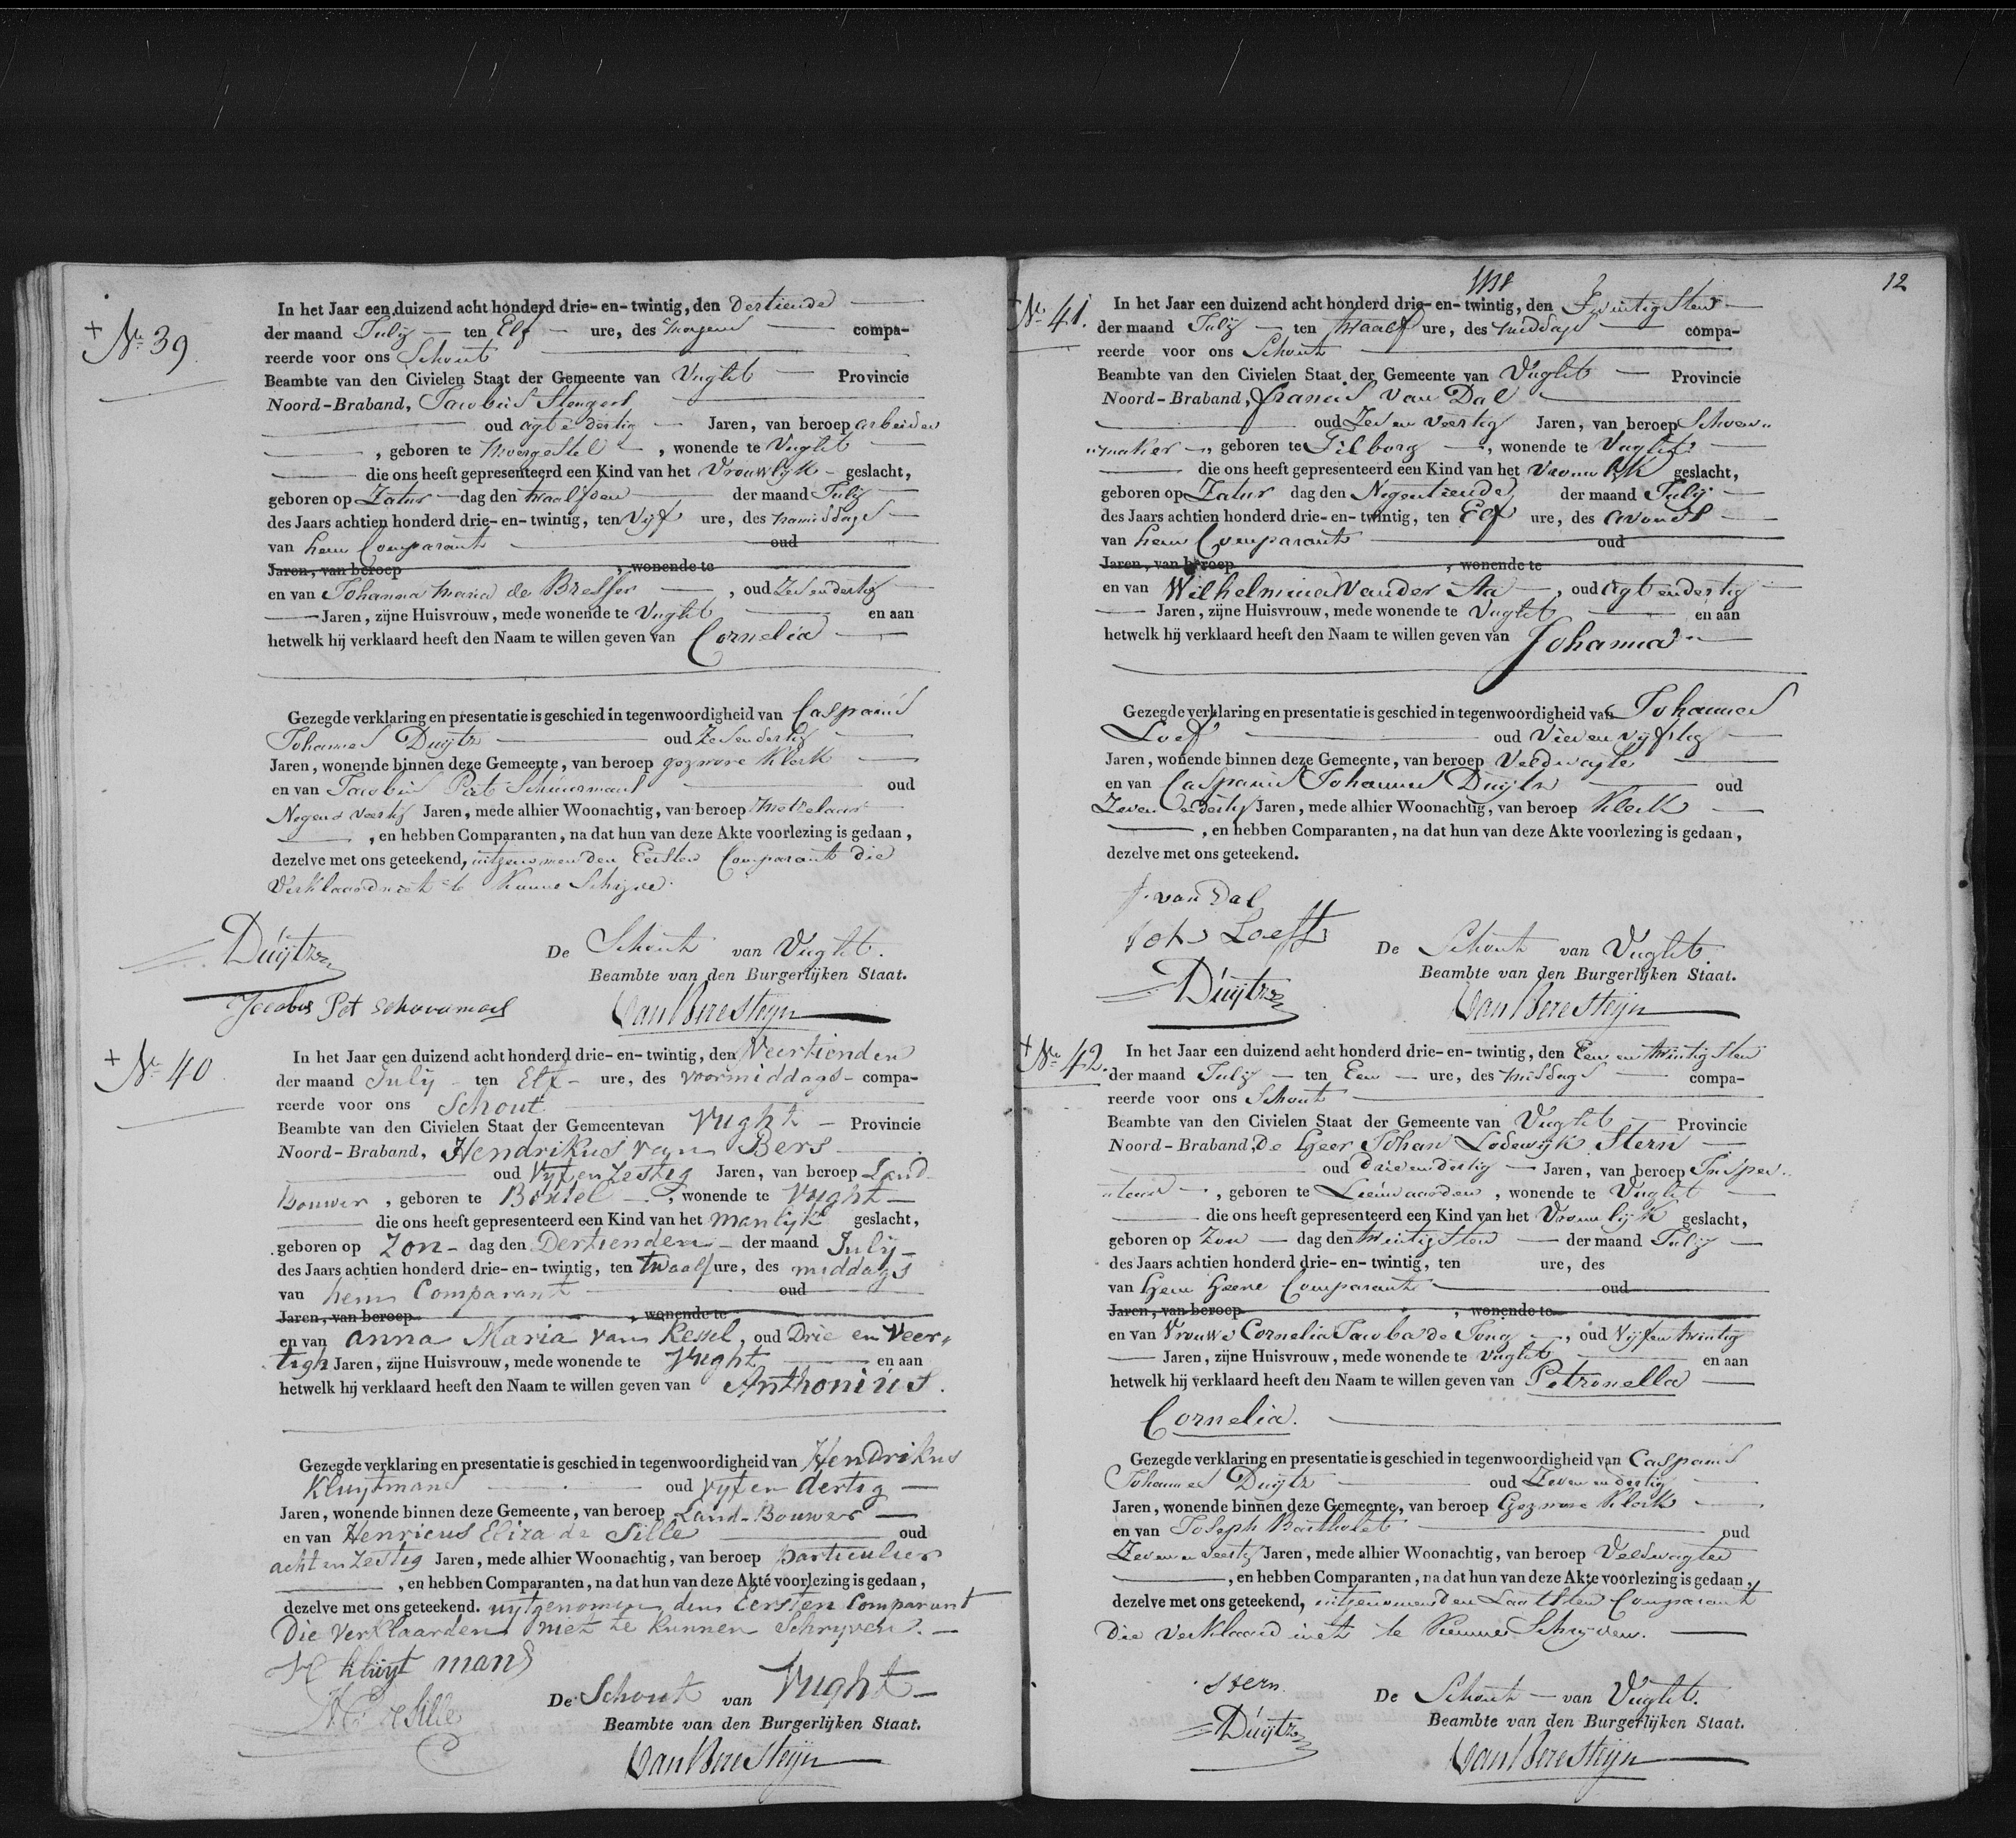 + No 39
In het Jaar een duizend acht honderd drie-en-twintig, den dertiende
der maand July ten Elf ure, des morgens compa-
reerde voor ons Schout
Beambte van den Civielen Staat der Gemeente van Vught Provincie
Noord-Braband, Jacobus
oud agt e dertig Jaren, van beroep arbeider
, geboren te Moergestel , wonende te Vught
die ons heeft gepresenteerd een Kind van het Vrouwlyk geslacht,
geboren op Zatur dag den twaalfden der maand July
des Jaars achtien honderd drie-en-twintig, ten Vyf ure, des namiddags
van hem Comparant oud
Jaren, van beroep , wonende te
en van Johanna Maria de Bresser , oud Zes en dertig
Jaren, zijne Huisvrouw, mede wonende te Vught en aan
hetwelk hij verklaard heeft den Naam te willen geven van Cornelia
Gezegde verklaring en presentatie is geschied in tegenwoordigheid van Casparus
Johannes Duijtz oud Zes en dertig
Jaren, wonende binnen deze Gemeente, van beroep gezwore Klerk
en van Jacobus Pet Schuurmans oud
Negen & veertig Jaren, mede alhier Woonachtig, van beroep Metzelaar
, en hebben Comparanten, na dat hun van deze Akte voorlezing is gedaan,
dezelve met ons geteekend, uitgenomen den Eersten Comparant die
Verklaard niet te Kunne Schijve
Duijtz
De Schout van Vught.
Beambte van den Burgerlijken Staat.
Jacobus Pet
Van Beresteijn
+ No 40
In het Jaar een duizend acht honderd drie-en-twintig, den Veertienden
der maand July ten Elf ure, des voormiddags compa-
reerde voor ons Schout
Beambte van den Civielen Staat der Gemeentevan Vught Provincie
Noord-Braband, Hendrikus van Bers
oud Vyf en Zestig Jaren, van beroep Land
Bouwer , geboren te Boxtel , wonende te Vught
die ons heeft gepresenteerd een Kind van het manlijk geslacht,
geboren op Zon dag den Dertienden der maand July
des Jaars achtien honderd drie-en-twintig, ten twaalf ure, des middags
van hem Comparant oud
Jaren, van beroep , wonende te
en van anna Maria van Kessel, oud Drie en Veer-
tigh Jaren, zijne Huisvrouw, mede wonende te Vught en aan
hetwelk hij verklaard heeft den Naam te willen geven van Anthonius.
Gezegde verklaring en presentatie is geschied in tegenwoordigheid van Hendrikus
Kluytmans oud Vyf en dertig
Jaren, wonende binnen deze Gemeente, van beroep Land-Bouwer
en van Henricus Eliza de Sille oud
acht en Zestig Jaren, mede alhier Woonachtig, van beroep particulier
, en hebben Comparanten, na dat hun van deze Akté voorlezing is gedaan,
dezelve met ons geteekend. uytgenomen den Eersten Comparant
Die Verklaarden niet te Kunnen Schryven.
H kluyt mans
De Schout van Vught
HE de Sille
Beambte van den Burgerlijken Staat.
Van Beresteijn
12
+ No 41.
In het Jaar een duizend acht honderd drie-en-twintig, den Twintigsten
der maand July ten twaalf ure, des middags compa-
reerde voor ons Schout
Beambte van den Civielen Staat der Gemeente van Vught Provincie
Noord-Braband, francis van Dal
oud Zes en Veertig Jaren, van beroep Schoen
maker , geboren te Tilborg , wonende te Vught
die ons heeft gepresenteerd een Kind van het Vrouwlyk geslacht,
geboren op Zatur dag den Negentiende der maand July
des Jaars achtien honderd drie-en-twintig, ten Elf ure, des avonds
van hem Comparant oud
Jaren, van beroep , wonende te
en van Wilhelmina Vander Aa , oud agt en dertig
Jaren, zijne Huisvrouw, mede wonende te Vught en aan
hetwelk hij verklaard heeft den Naam te willen geven van Johanna
Gezegde verklaring en presentatie is geschied in tegenwoordigheid van Johannes
Loeff oud Vier en vyftig
Jaren, wonende binnen deze Gemeente, van beroep Veldwagter
en van Casparus Johannes Duijtz oud
Zeven en dertig Jaren, mede alhier Woonachtig, van beroep Klerk
, en hebben Comparanten, na dat hun van deze Akte voorlezing is gedaan,
dezelve met ons geteekend.
f. van Dal
Joh Loeff
De Schout van Vught.
Beambte van den Burgerlijken Staat.
Duijtz
Van Beresteijn
+ No 42.
In het Jaar een duizend acht honderd drie-en-twintig, den Een en twintigsten
der maand July ten Een ure, des middags compa-
reerde voor ons Schout
Beambte van den Civielen Staat der Gemeente van Vught Provincie
Noord-Braband, De Heer Johan Lodewijk Stern
oud drie en dertig Jaren, van beroep Inspec
teur , geboren te Leeuwaarden , wonende te Vught
die ons heeft gepresenteerd een Kind van het Vrouwlijk geslacht,
geboren op Zon dag den twintigsten der maand July
des Jaars achtien honderd drie-en-twintig, ten ure, des
van Hem Heere Comparant oud
Jaren, van beroep , wonende te
en van Vrouwe Cornelia Jacoba de Jong , oud Vyf en twintig
Jaren, zijne Huisvrouw, mede wonende te Vught en aan
hetwelk hij verklaard heeft den Naam te willen geven van Petronella
Cornelia.
Gezegde verklaring en presentatie is geschied in tegenwoordigheid van Casparus
Johannes Duijtz oud Zeven en dertig
Jaren, wonende binnen deze Gemeente, van beroep Gezwore Klerk
en van Joseph Bartholet oud
Zeven en veertig Jaren, mede alhier Woonachtig, van beroep Veldwagter
, en hebben Comparanten, na dat hun van deze Akte voorlezing is gedaan,
dezelve met ons geteekend, uitgenomen den Laatsten Comparant
Die Verklaard niet te Kunne Schryven.
Stern
De Schout van Vught.
Duijtz
Beambte van den Burgerlijken Staat.
Van Beresteijn